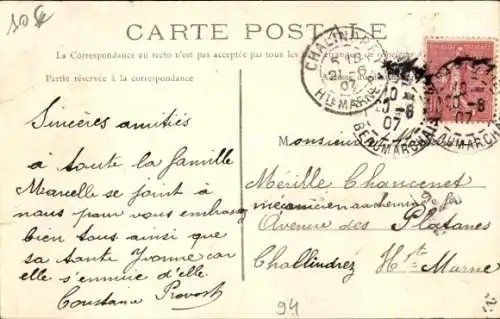 50€
CARTE POSTALE
La Correspondance au recto n'est pas acceptée par tous les
Partie réservée à la correspondance
CHALINDREY
HTE MARNE
07
10 -8
07
BEAUMARCHAIS
10 -8
07
BEAUMARCHAIS
Sincères amitiés
à toute la famille
Marcelle se joint à
nous pour vous embrasser
bien tous ainsi que
sa tante Yvonne car
elle s'ennuie d'elle.
Constane Provost
Monsieur
Mérille Chancenet
mécanicien au chemin de fer
Avenue des Platanes
Challindrez Hte Marne
94